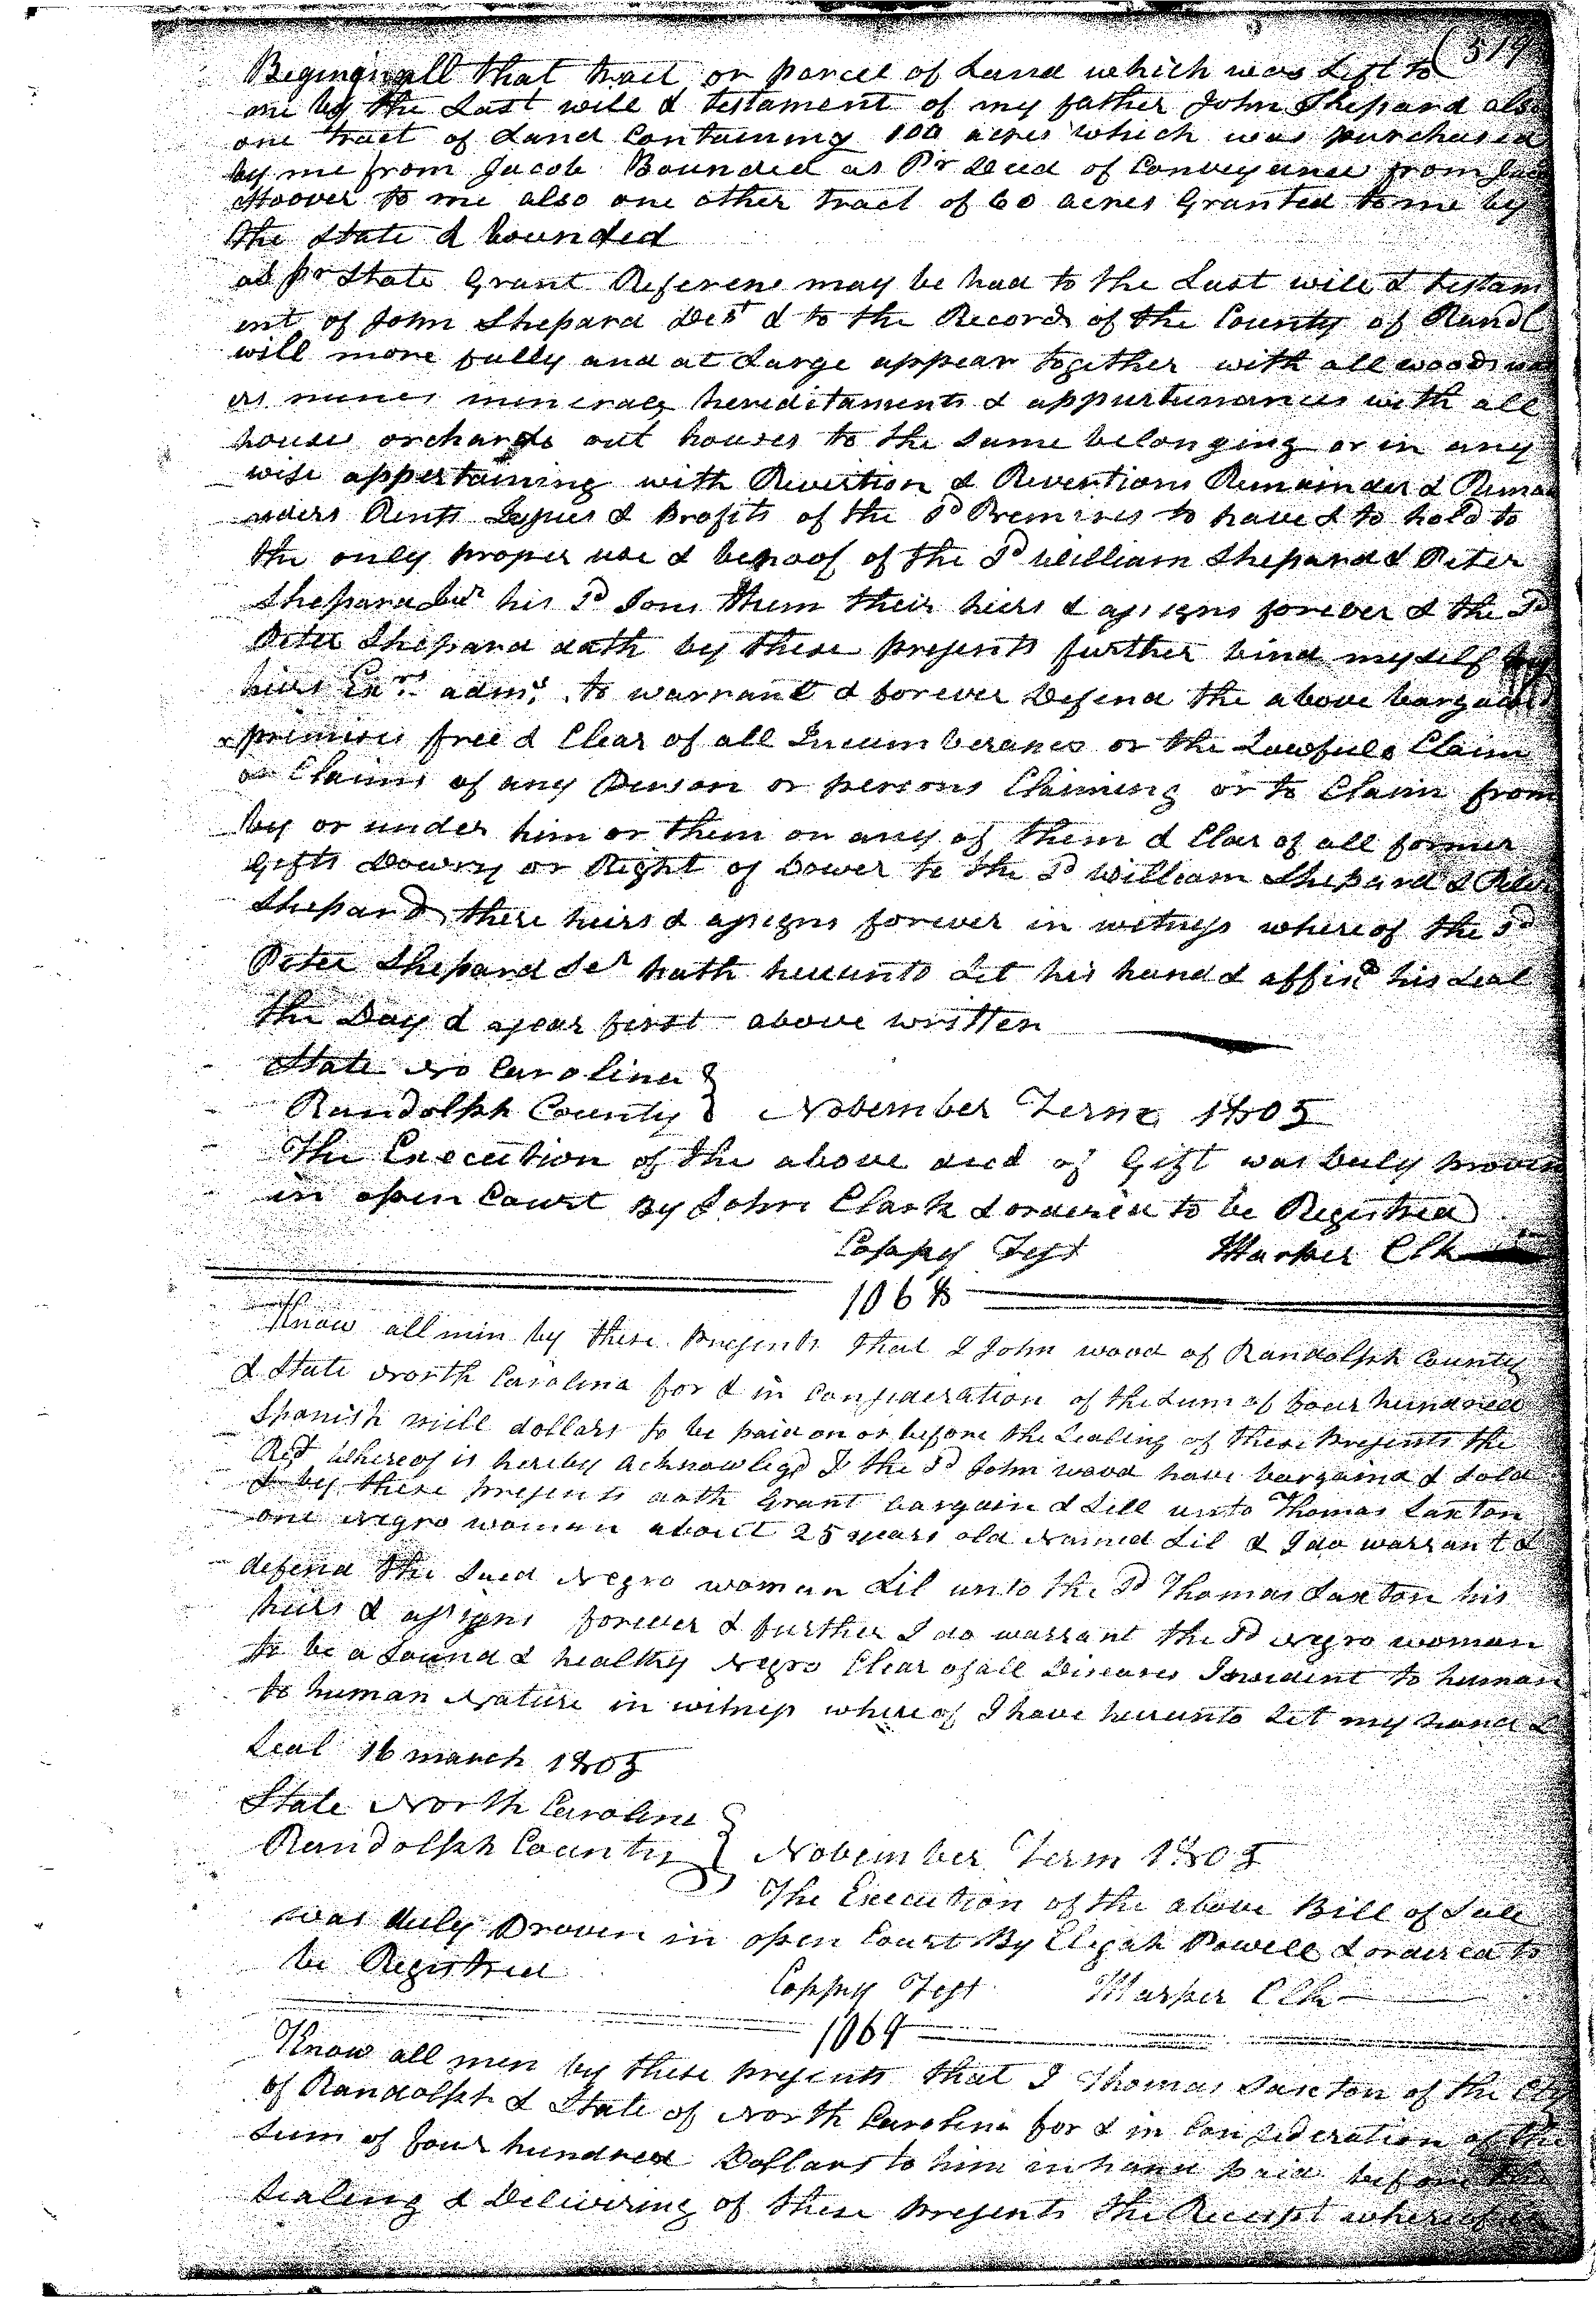 (519
Begining all that tract or parcel of Land which was Left to
me by the Last will & testament of my father John Shepard also
one tract of Land Containing 100 acres which was purchased
by me from Jacob Bounded as Pr Deed of Conveyance from
Hoover to me also one other tract of 60 acres Granted to me by
the State & bounded
as pr State Grant Referene may be had to the Last will & testam
ent of John Shepard Desd & to the Records of the County of Rand
will more fully and at Large appear together with all woods wat
ers mines minerals hereditaments & appurtenances with all
houses orchards out houses to the Same belonging or in any
wise appertaining with Revertion & Revertions Remainder & Remai
nders Rents Issues & Profits of the Sd Premises to have & to hold to
the only proper use & behoof of the Sd William Shepard & Peter
Shepard Jur his Sd Sons them their heirs & assigns forever & the Sd
Peter Shepard doth by these presents further bind myself my
heirs Exrs admrs to warrant & forever Defend the above bargaind
premises free & Clear of all Incumberances or the Lawfull Claim
or Claims of any Person or persons Claiming or to Claim from
by or under him or them or any of them & Clar of all former
Gifts Dowry or Right of Dower to the Sd William Shepard & Peter
Shepard there heirs & assigns forever in witness whereof the Sd
Peter Shepard Ser hath hereunto Set his hand & affixd his Seal
the Day & year first above written
State No Carolina }
Randolph County } November Term 1805
The Execution of the above deed of Gift was Duly proven
in open Court By John Clark & ordered to be Registred
Coppy Test Harper Clk
1068
Know all min by these Presents that I John wood of Randolph County
& State North Carolina for & in Consideration of the Sum of four hundred
Spanish mill dollars to be paid on or before the Sealing of these Presents the
Rect whereof is hereby acknowlegd I the Sd John wood have bargaind & Sold
& by these presents doth Grant bargain & Sell unto Thomas Saxton
one Negro woman about 25 years old Named Lil & I do warrant &
defend the Said Negro woman Lil unto the Sd Thomas Saxton his
heirs & assigns forever & further I do warrant the Sd Negro woman
to be a Sound & healthy Negro Clear of all Diseases Insident to human
to human Nature in witness whereof I have hereunto Set my hand &
Seal 16 march 1805
State North Carolina }
Randolph County } November Term 1805
The Execution of the above Bill of Sale
was duly Proven in open Court By Elijah Powell & ordered to
be Registred
Coppy Test Harper Clk
1069
Know all men by these presents that I Thomas Saxton of the Cty
of Randolph & State of North Carolina for & in Consideration of the
Sum of four hundred Dollars to him in hand paid before the
Sealing & Delivering of these presents the Receipt whereof